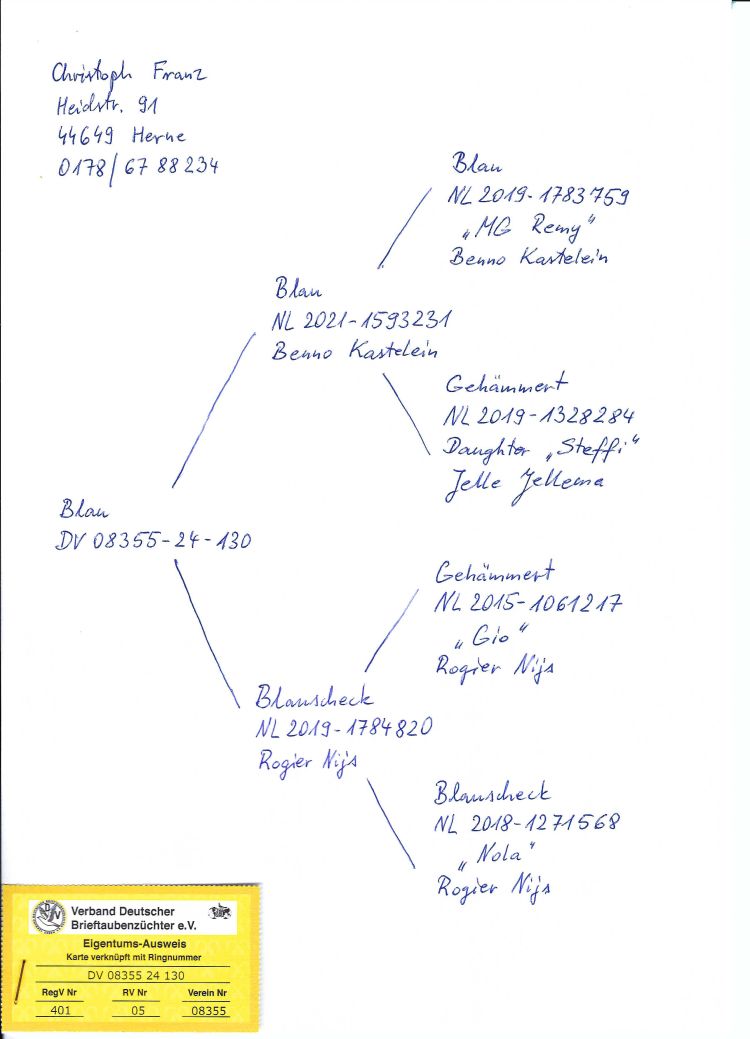 Christoph Franz
Heidstr. 91
44649 Herne
0178/67 88 234
Blau
NL 2019-1783759
„MG Remy“
Benno Kastelein
Blau
NL 2021-1593231
Benno Kastelein
Gehämmert
NL 2019-1328284
Daughter „Steffi“
Jelle Jellema
Blau
DV 08355-24-130
Gehämmert
NL 2015-1061217
„Gio“
Rogier Nijs
Blauscheck
NL 2019-1784820
Rogier Nijs
Blauscheck
NL 2018-1271568
„Nola“
Rogier Nijs
Verband Deutscher
Brieftaubenzüchter e.V.
Eigentums-Ausweis
Karte verknüpft mit Ringnummer
DV 08355 24 130
RegV Nr RV Nr Verein Nr
401 05 08355